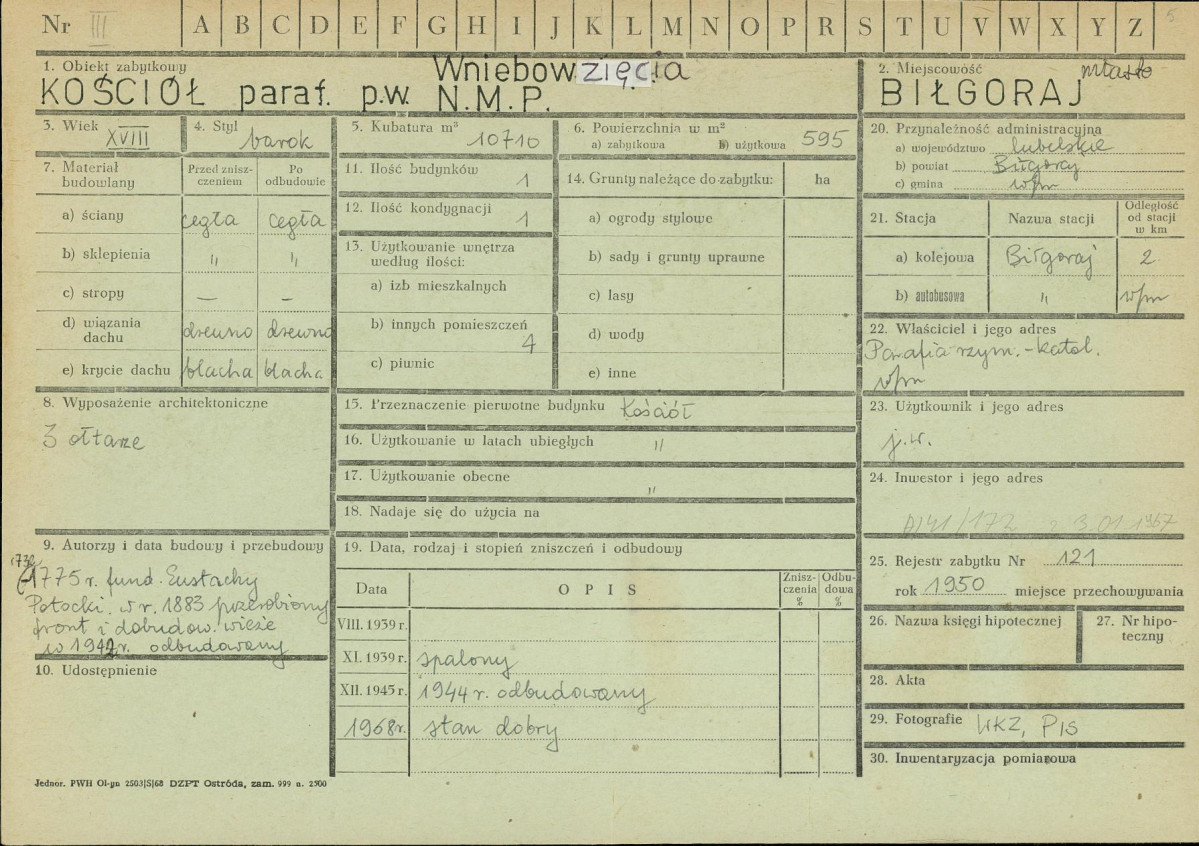 Nr III A B C D E F G H I J K L M N O P R S T U V W X Y Z 5
1. Obiekt zabytkowy
KOŚCIÓŁ paraf. p.w. Wniebowzięcia
N.M.P.
2. Miejscowość miasto
BIŁGORAJ
3. Wiek
XVIII
4. Styl
barok
5. Kubatura m³
10710
6. Powierzchnia w m²
a) zabytkowa b) użytkowa 595
7. Materiał
budowlany
Przed znisz-
czeniem
Po
odbudowie
a) ściany cegła cegła
b) sklepienia " "
c) stropy — —
d) wiązania
dachu drewno drewno
e) krycie dachu blacha blacha
8. Wyposażenie architektoniczne
3 ołtarze
9. Autorzy i data budowy i przebudowy
1775 r. fund. Eustachy
Potocki. w r. 1883 przerobiony
front i dobudow. wieże
w 1942r. odbudowany
10. Udostępnienie
11. Ilość budynków
1
12. Ilość kondygnacji
1
13. Użytkowanie wnętrza
według ilości:
a) izb mieszkalnych
b) innych pomieszczeń
4
c) piwnic
14. Grunty należące do zabytku: ha
a) ogrody stylowe
b) sady i grunty uprawne
c) lasy
d) wody
e) inne
15. Przeznaczenie pierwotne budynku Kościół
16. Użytkowanie w latach ubiegłych "
17. Użytkowanie obecne "
18. Nadaje się do użycia na
19. Data, rodzaj i stopień zniszczeń i odbudowy
Data OPIS Znisz-
czenia
%
Odbu-
dowa
%
VIII. 1939 r.
XI. 1939 r. spalony
XII. 1945 r. 1944 r. odbudowany
1968r. stan dobry
20. Przynależność administracyjna
a) województwo lubelskie
b) powiat Biłgoraj
c) gmina w/m
21. Stacja Nazwa stacji Odległość
od stacji
w km
a) kolejowa Biłgoraj 2
b) autobusowa " w/m
22. Właściciel i jego adres
Parafia rzym.-katol.
w/m
23. Użytkownik i jego adres
j.w.
24. Inwestor i jego adres
A/41/172 z 3.01 1967
25. Rejestr zabytku Nr 121
rok 1950 miejsce przechowywania
26. Nazwa księgi hipotecznej
27. Nr hipo-
teczny
28. Akta
29. Fotografie WKZ, PIS
30. Inwentaryzacja pomiarowa
Jednor. PWH Ol-yn 2503|S|68 DZPT Ostróda, zam. 999 n. 2500